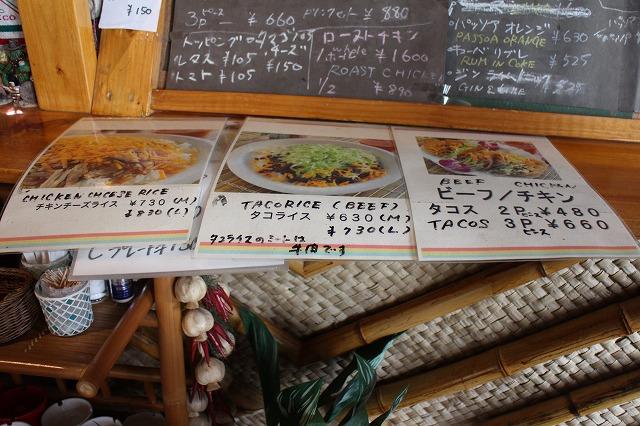 ¥150
3P ピース ¥660
ドリンクセット ¥880
トッピング
チーズ
レタス ¥105 ¥150
トマト ¥105
ローストチキン
1 whole ¥1600
ROAST CHICKEN
1/2 ¥890
パッソア オレンジ
PASSOA ORANGE ¥630
キューバ リバレ
RUM IN COKE ¥525
ジン
GIN & LIME
CHICKEN CHEESE RICE
チキンチーズライス ¥730 (M)
¥830 (L)
TACORICE (BEEF)
タコライス ¥630 (M)
¥730 (L)
タコライスのミートは
牛肉です
BEEF CHICKEN
ビーフ/チキン
タコス 2Pピース ¥480
TACOS 3Pピース ¥660